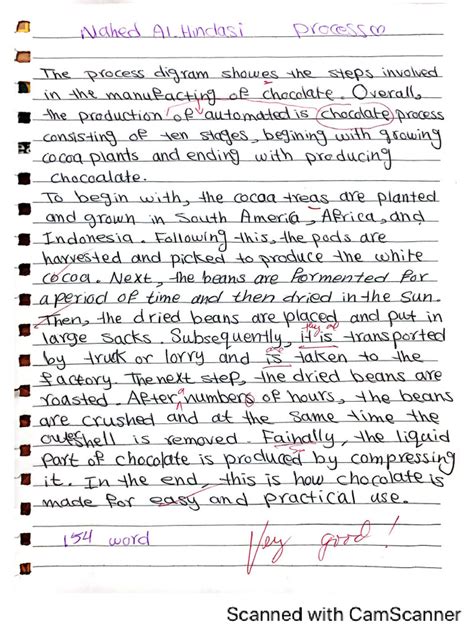 Nahed Al. Hindasi Process (1)
The process digram showes the steps involved
in the manufacting of chocolate. Overall,
the production of automated is chocolate process
consisting of ten stages, begining with growing
cocoa plants and ending with producing
chocoalate.
To begin with, the cocaa treas are planted
and grown in South Ameria, Africa, and
Indonesia. Following this, the pods are
harvested and picked to produce the white
cocoa. Next, the beans are formented for
a period of time and then dried in the sun.
Then, the dried beans are placed and put in
large sacks. Subsequently, it is transported
they are
by truck or lorry and is taken to the
are
factory. The next step, the dried beans are
roasted. After numbers of hours, the beans
a
are crushed and at the same time the
outer shell is removed. Fainally, the liquid
part of chocolate is produced by compressing
it. In the end, this is how chocolate is
made for easy and practical use.
154 word
Very good!
Scanned with CamScanner